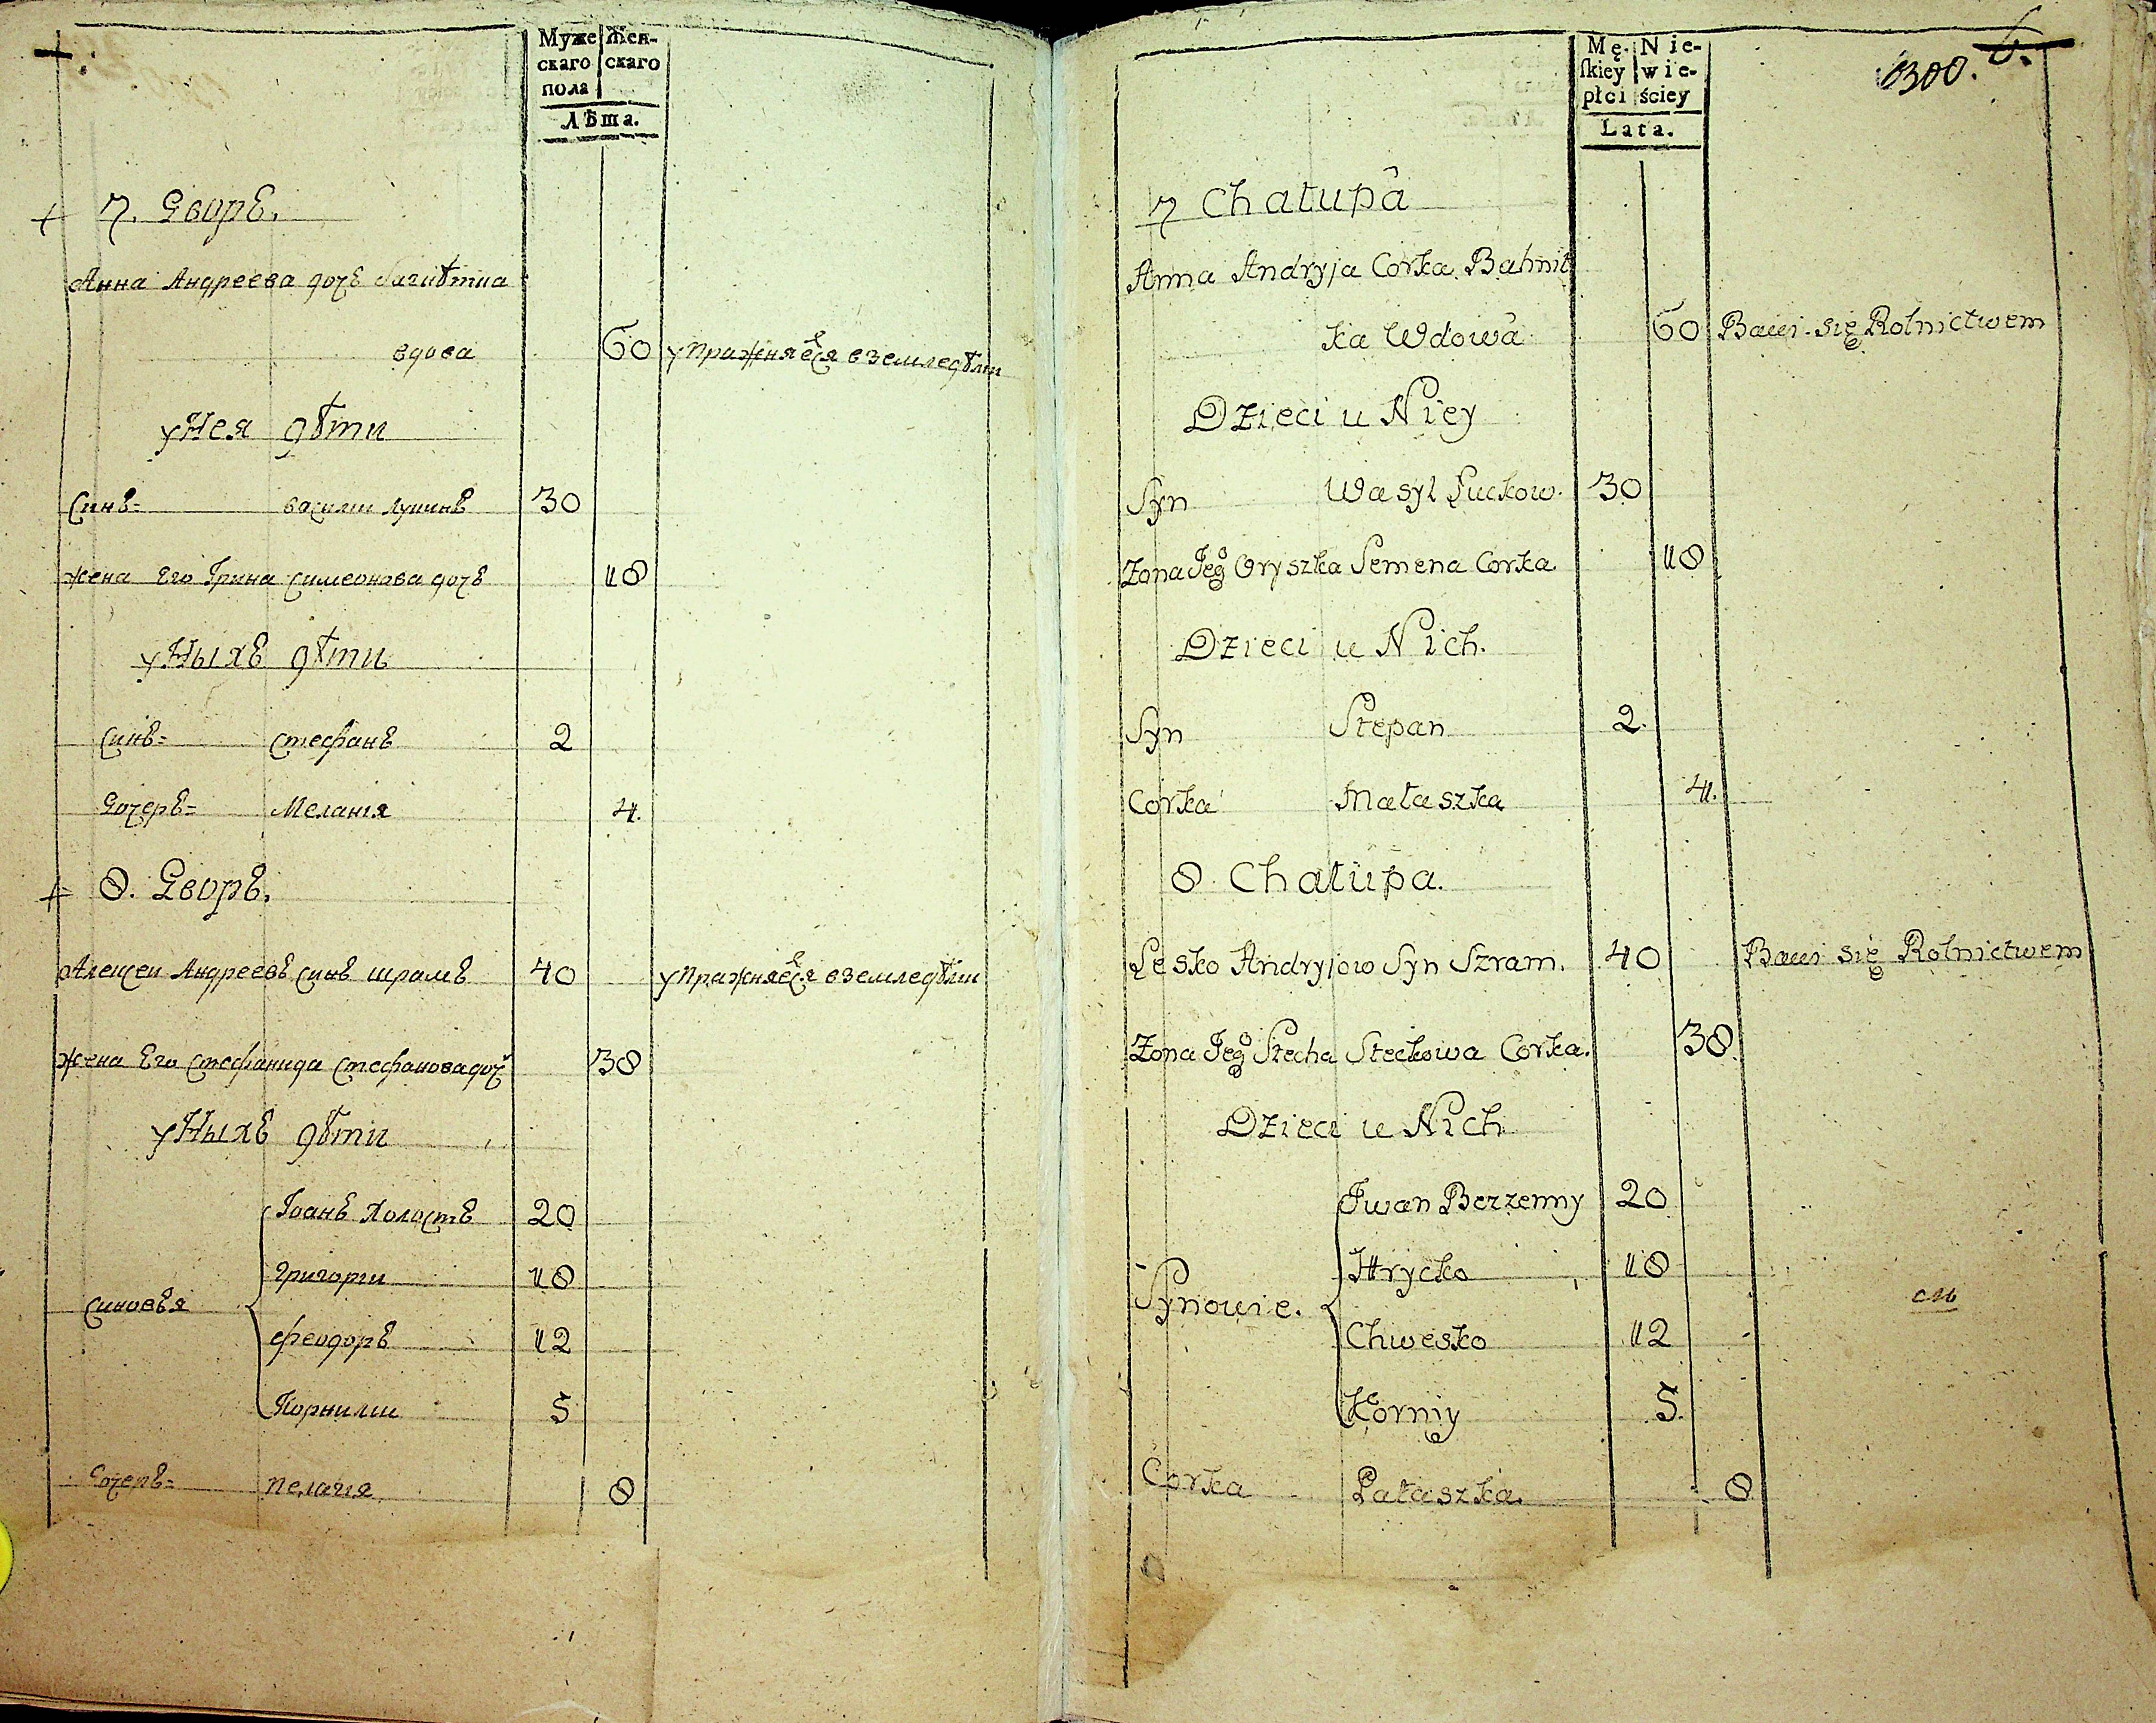 Муже- Жен-
скаго скаго
пола
Лѣта.
7. Дворъ.
Анна Андреева дочъ
вдова 60 упражняется в земледѣлии
у Нея дѣти
синъ= василии лукинъ 30
жена Его Ірина симеонова дочъ 18
у Ныхъ дѣти
синъ= стефанъ 2
Дочеръ= Меланія 4.
8. Дворъ.
Алексеи Андреевъ синъ шрамъ 40 упражняется в земледѣлии
жена Его стефанида стефанова доч 38
у Ныхъ дѣти
Іоанъ холостъ 20
Григории 18
синовья
феодоръ 12
Корнилии 5
Дочеръ= пелагія 8
Mę- Nie-
ſkiey wie-
płci ściey
Lata.
1300. 6.
7 Chałupa
Anna Andryja Corka Bahnit
ka Wdowa 60 Bawi się Rolnictwem
Dzieci u Niey
Syn Wasyl Łuckow. 30
Zona Jego Oryszka Semena Corka 18
Dzieci u Nich.
Syn Stepan 2.
Corka Małaszka 4.
8 Chałupa.
Lesko Andryjow Syn Szram. 40 Bawi się Rolnictwem
Zona Jego Stecha Steckowa Corka. 38.
Dzieci u Nich
Iwan Bezzenny 20
Hrycko 18
Synowie.
Chwesko 12
Korniy 5.
Corka Pałaszka. 8